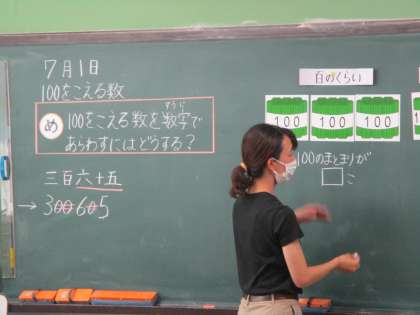 7月1日
100をこえる数
め 100をこえる数を数字で
すうじ
あらわすにはどうする?
三百六十五
→ 300605
百のくらい
100 100 100
100のまとまりが
□こ